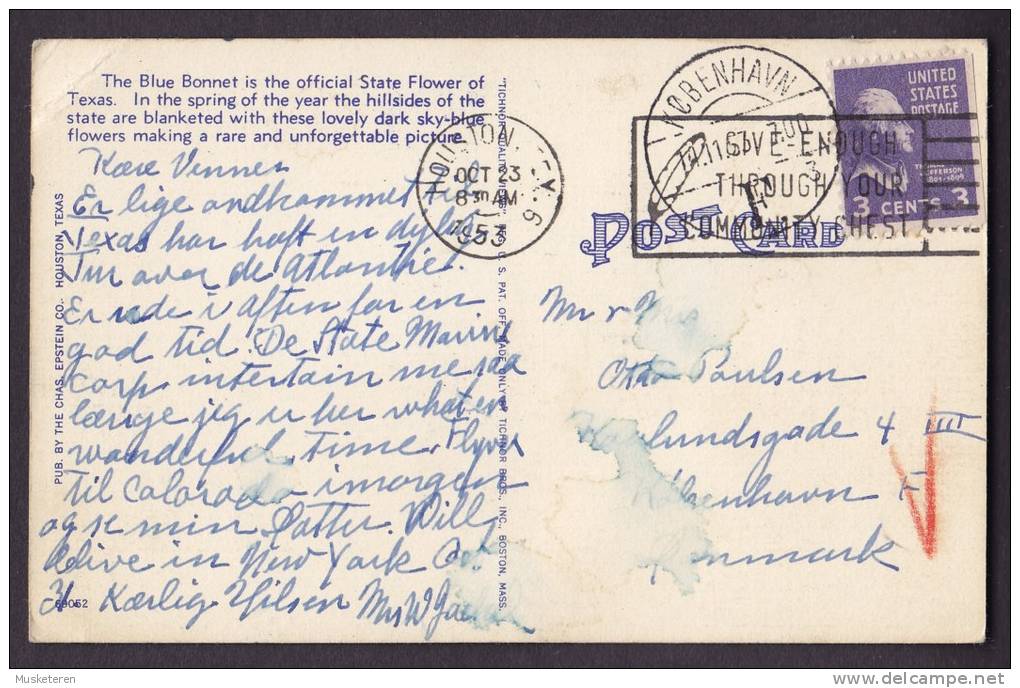 The Blue Bonnet is the official State Flower of
Texas. In the spring of the year the hillsides of the
state are blanketed with these lovely dark sky-blue
flowers making a rare and unforgettable picture.
Kære Venner
Er lige andkommet til
Texas har haft en dejlig
Tur over de Atlantic.
Er ude i aften for en
god tid. De State Marine
Corp intertain me saa
længe jeg er her what en
wonderful time. Flyver
til Colorado imorgen
og se min Datter. Will
arive in New York Oct
31 Kærlig Hilsen Mrs W
69052
PUB. BY THE CHAS. EPSTEIN CO., HOUSTON, TEXAS
"TICHNOR QUALITY VIEWS," REG. U. S. PAT. OFF. MADE ONLY BY TICHNOR BROS., INC., BOSTON, MASS.
HOUSTON, TEX. 6
OCT 23
8 30 AM
1953
KØBENHAVN
GIVE ENOUGH
THROUGH YOUR
COMMUNITY CHEST
UNITED
STATES
POSTAGE
THOMAS
JEFFERSON
1801-1809
3 CENTS 3
POST CARD
Mr & Mrs
Otto Poulsen
lundsgade 4 III
København
Danmark
Musketeren
www.delcampe.net